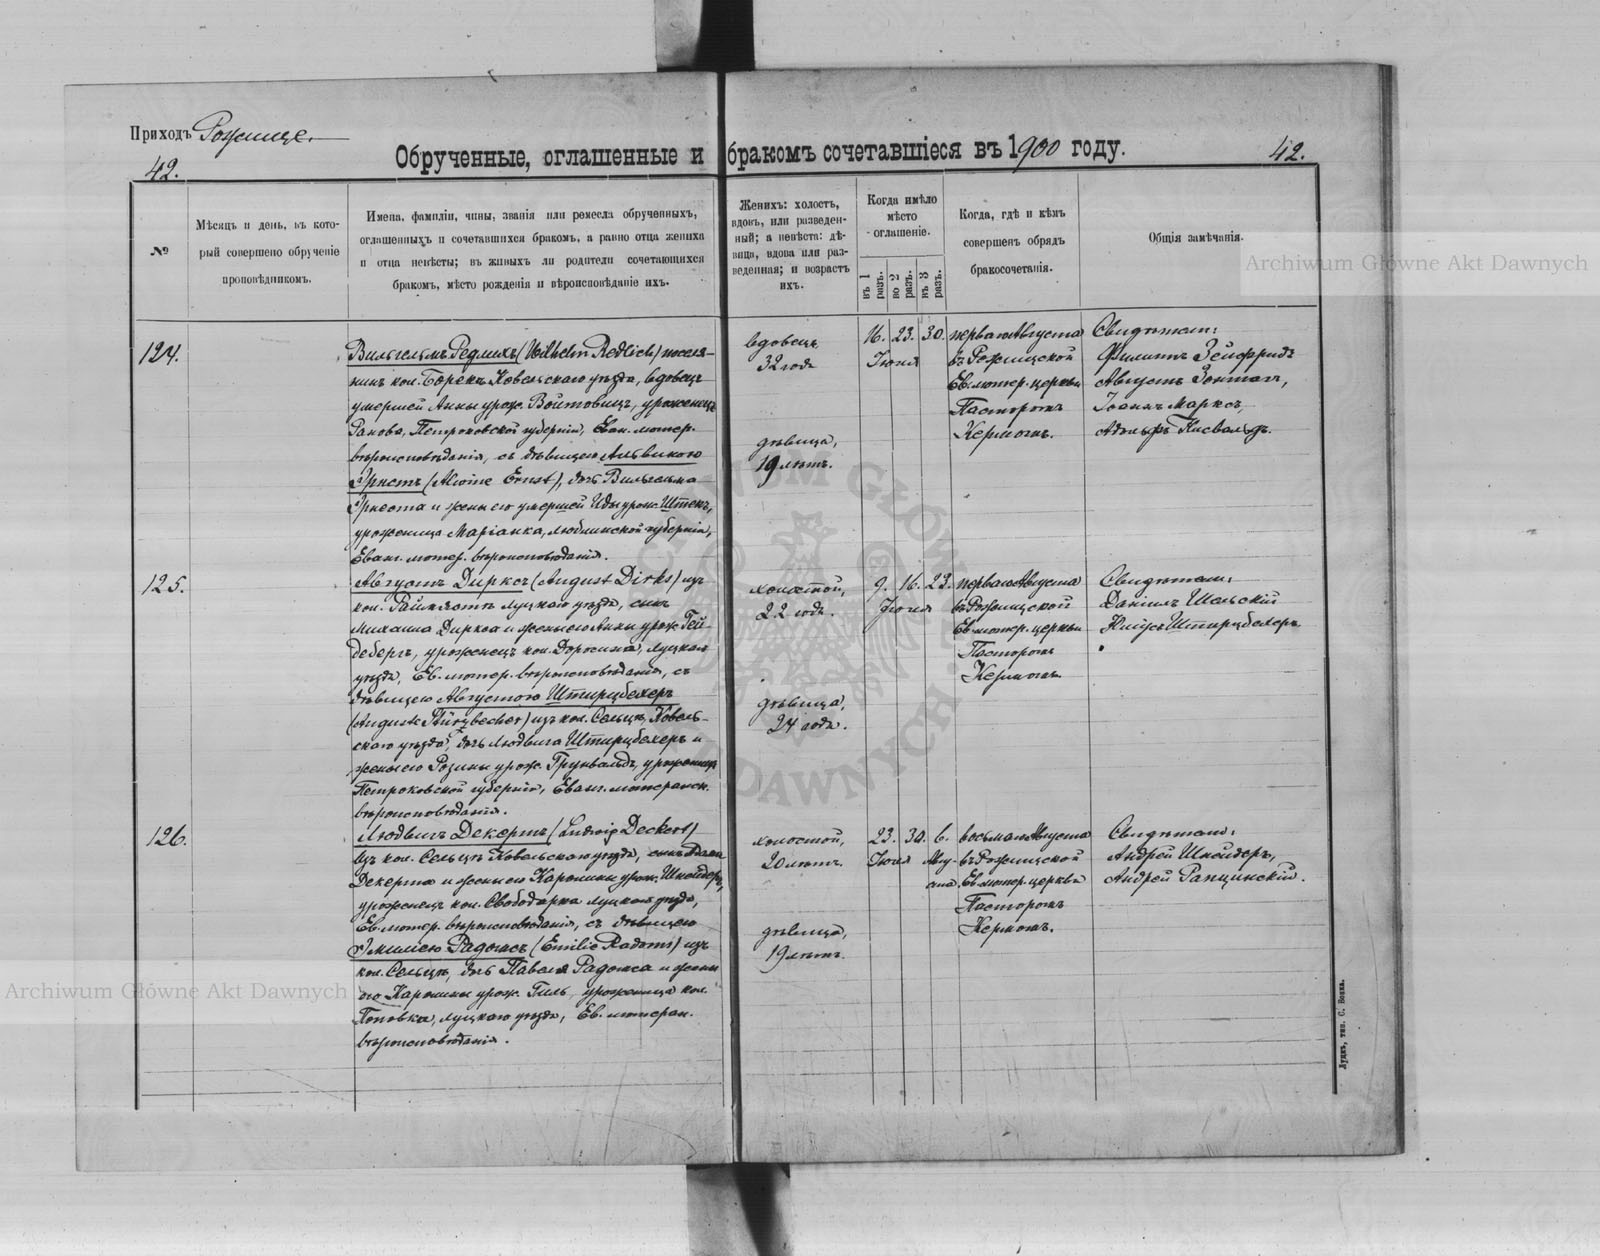 Приходъ Рожище.
42.
Обрученные, оглашенные и бракомъ сочетавшіеся въ 1900 году.
42.
№
Мѣсяцъ и день, въ кото-
рый совершено обрученіе
проповѣдникомъ.
Имена, фамиліи, чины, званія или ремесла обрученныхъ,
оглашенныхъ и сочетавшихся бракомъ, а равно отца жениха
и отца невѣсты; въ живыхъ ли родители сочетающихся
бракомъ, мѣсто рожденія и вѣроисповѣданіе ихъ.
Женихъ: холостъ,
вдовъ, или разведен-
ный; а невѣста: дѣ-
вица, вдова или раз-
веденная; и возрастъ
ихъ.
Когда имѣло
мѣсто
оглашеніе.
въ 1 разъ.
во 2 разъ.
въ 3 разъ.
Когда, гдѣ и кѣмъ
совершенъ обрядъ
бракосочетанія.
Общія замѣчанія.
Archiwum Główne Akt Dawnych
124.
Вильгельмъ Редлихъ (Wilhelm Redlich) поселя-
нинъ кол. Борекъ Ковельскаго уѣзда, вдовецъ
умершей Анны урож. Войтовицъ, уроженецъ
Ракова, Петроковской губерніи, Еван. лютер.
вѣроисповѣданія, съ дѣвицею Альвиною
Эрнстъ (Alwine Ernst), дочь Вильгельма
Эрнста и жены его умершей Иды урож. Штенъ,
уроженица Маріанка, Люблинской губерніи,
Еванг. лютер. вѣроисповѣданія.
вдовецъ
32 года
дѣвица,
19 лѣтъ.
16. 23. 30.
Іюля
перваго Августа
въ Рожищской
Ев. лютер. церкви
Пасторомъ
Керномъ.
Свидѣтели:
Филиппъ Зейфридъ
Августъ Зонтагъ,
Іоаннъ Марксъ,
Адольфъ Кисвальдъ.
125.
Августъ Дирксъ (August Dirks) изъ
кол. луцкаго уѣзда, сынъ
Михаила Диркса и жены его Анны урож. Гей-
дебергъ, уроженецъ кол. Доросинъ, луцкаго
уѣзда, Ев. лютер. вѣроисповѣданія, съ
дѣвицею Августою Штирцбехеръ
(Auguste Stürzbecher) изъ кол. Сельцъ, Ковель-
скаго уѣзда, дочь Людвига Штирцбехеръ и
жены его Розины урож. Грунвальдъ, уроженица
Петроковской губерніи, Еванг. лютеранск.
вѣроисповѣданія.
холостой,
22 годъ.
дѣвица,
24 года.
9. 16. 23.
Іюля
перваго Августа
въ Рожищской
Ев. лютер. церкви
Пасторомъ
Керномъ.
Свидѣтели:
Даніилъ Шельскій
Юліусъ Штирцбехеръ
126.
Людвигъ Декертъ (Ludwig Deckert)
изъ кол. Сельцъ Ковельскаго уѣзда, сынъ
Декерта и жены его Каролины урож. Шнейдеръ,
уроженецъ кол. Свободарка луцкаго уѣзда,
Ев. лютер. вѣроисповѣданія, съ дѣвицею
Эмиліею Радомсъ (Emilie Radoms) изъ
кол. Сельцъ, дочь Павла Радомса и жены
его Каролины урож. Гиль, уроженица кол.
Поповка, луцкаго уѣзда, Ев. лютеран.
вѣроисповѣданія.
холостой,
20 лѣтъ.
дѣвица,
19 лѣтъ.
23. 30. 6.
Іюля Авгу-
ста
восьмаго Августа
въ Рожищской
Ев. лютер. церкви
Пасторомъ
Керномъ.
Свидѣтели:
Андрей Шнейдеръ,
Андрей Рапцинскій.
Archiwum Główne Akt Dawnych
Луцкъ, тип. С. Бокка.
ARCHIWUM GŁÓWNE AKT DAWNYCH